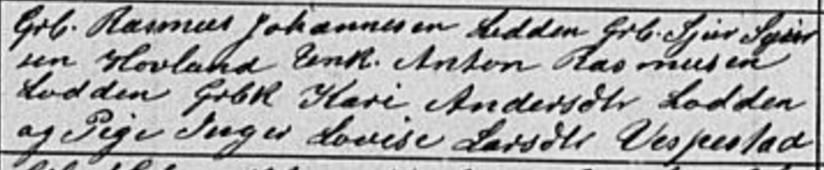 Grb. Rasmus Johannesen Lodden Grb. Sjur Sjur
sen Hovland Unk. Anton Rasmusen
Lodden GrbK Kari Andersdtr Lodden
og Pige Inger Lovise Larsdtr Vespestad